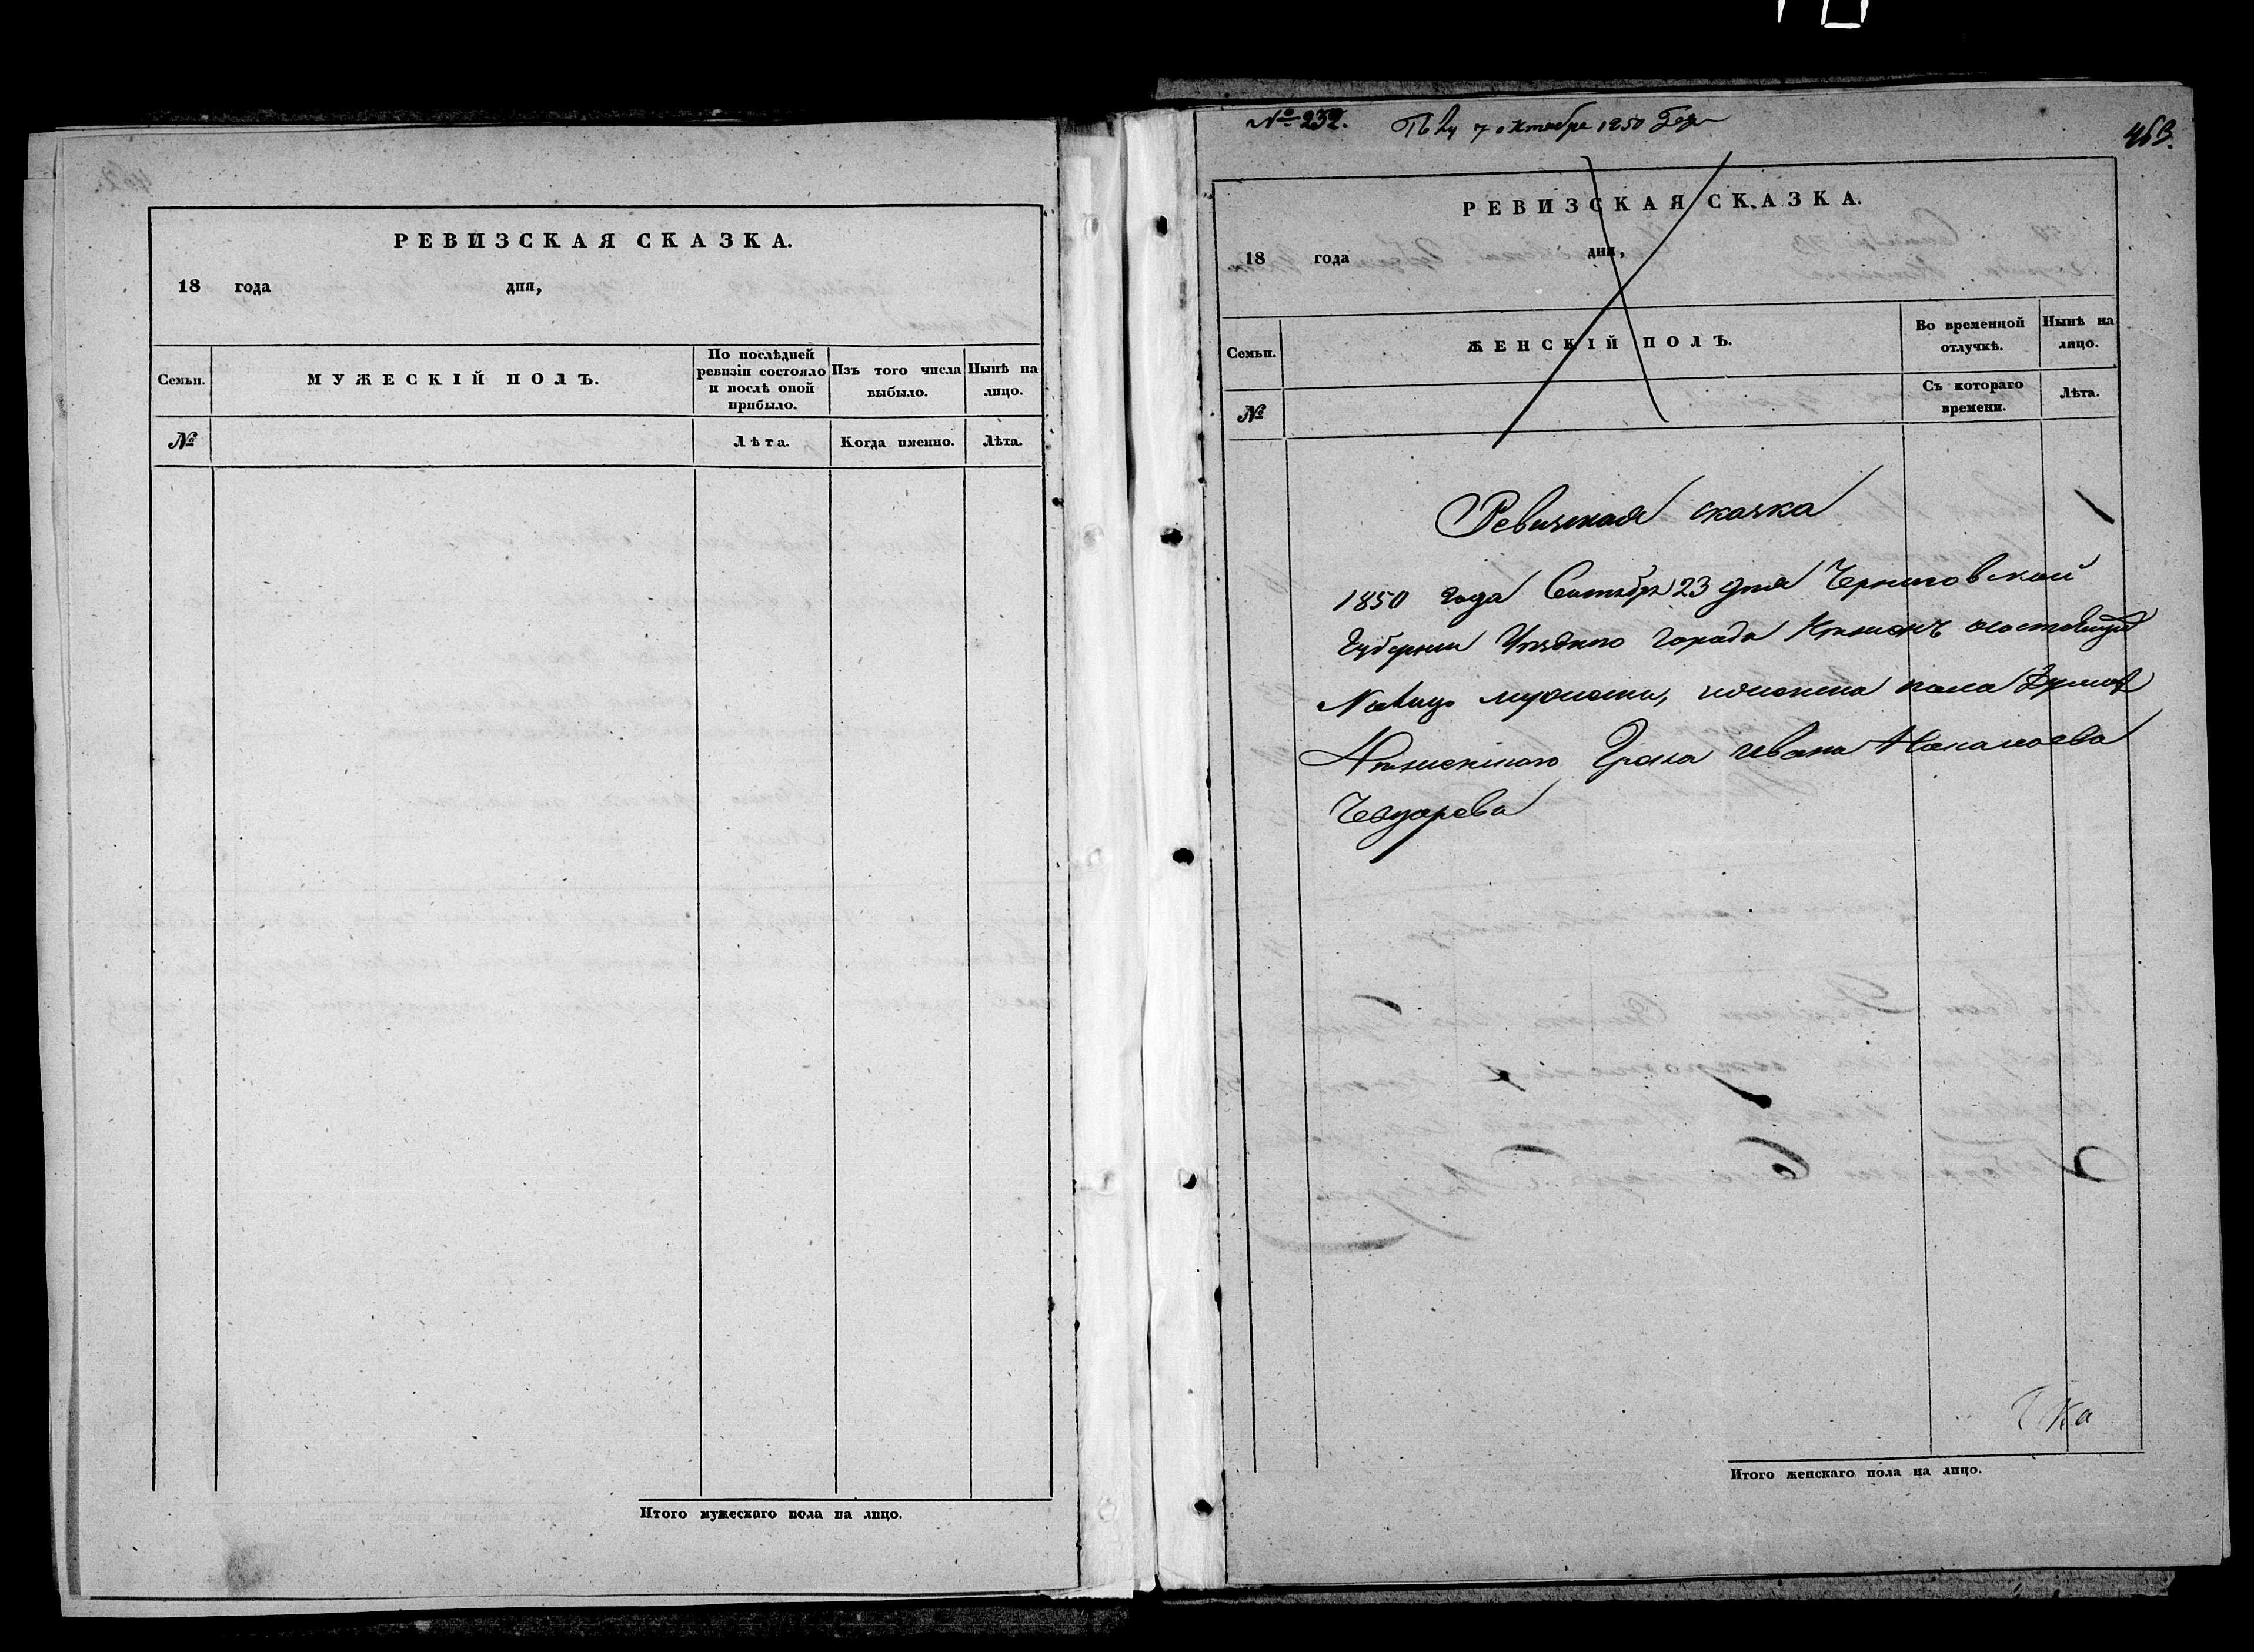 РЕВИЗСКАЯ СКАЗКА.
18 года дня,
Семьи.
МУЖЕСКІЙ ПОЛЪ.
По послѣдней ревизіи состояло и послѣ оной прибыло.
Изъ того числа выбыло.
Нынѣ на лицо.
№
Лѣта.
Когда именно.
Лѣта.
Итого мужескаго пола на лицо.
№ 232.
7 октября 1850 года
463.
РЕВИЗСКАЯ СКАЗКА.
18 года дня,
Семьи.
ЖЕНСКІЙ ПОЛЪ.
Во временной отлучкѣ.
Нынѣ на лицо.
№
Съ котораго времени.
Лѣта.
Ревизская сказка
1850 года Сентября 23 дня Черниговской
Губерніи Уезднаго города Нѣжина
мужеска, и женска пола
Нѣжинскаго Грека Ивана
Итого женскаго пола на лицо.